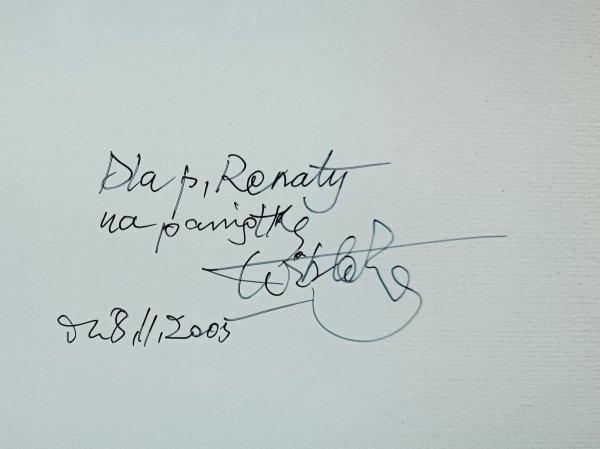 Dla p. Renaty
na pamiątkę
dn 8.11.2005